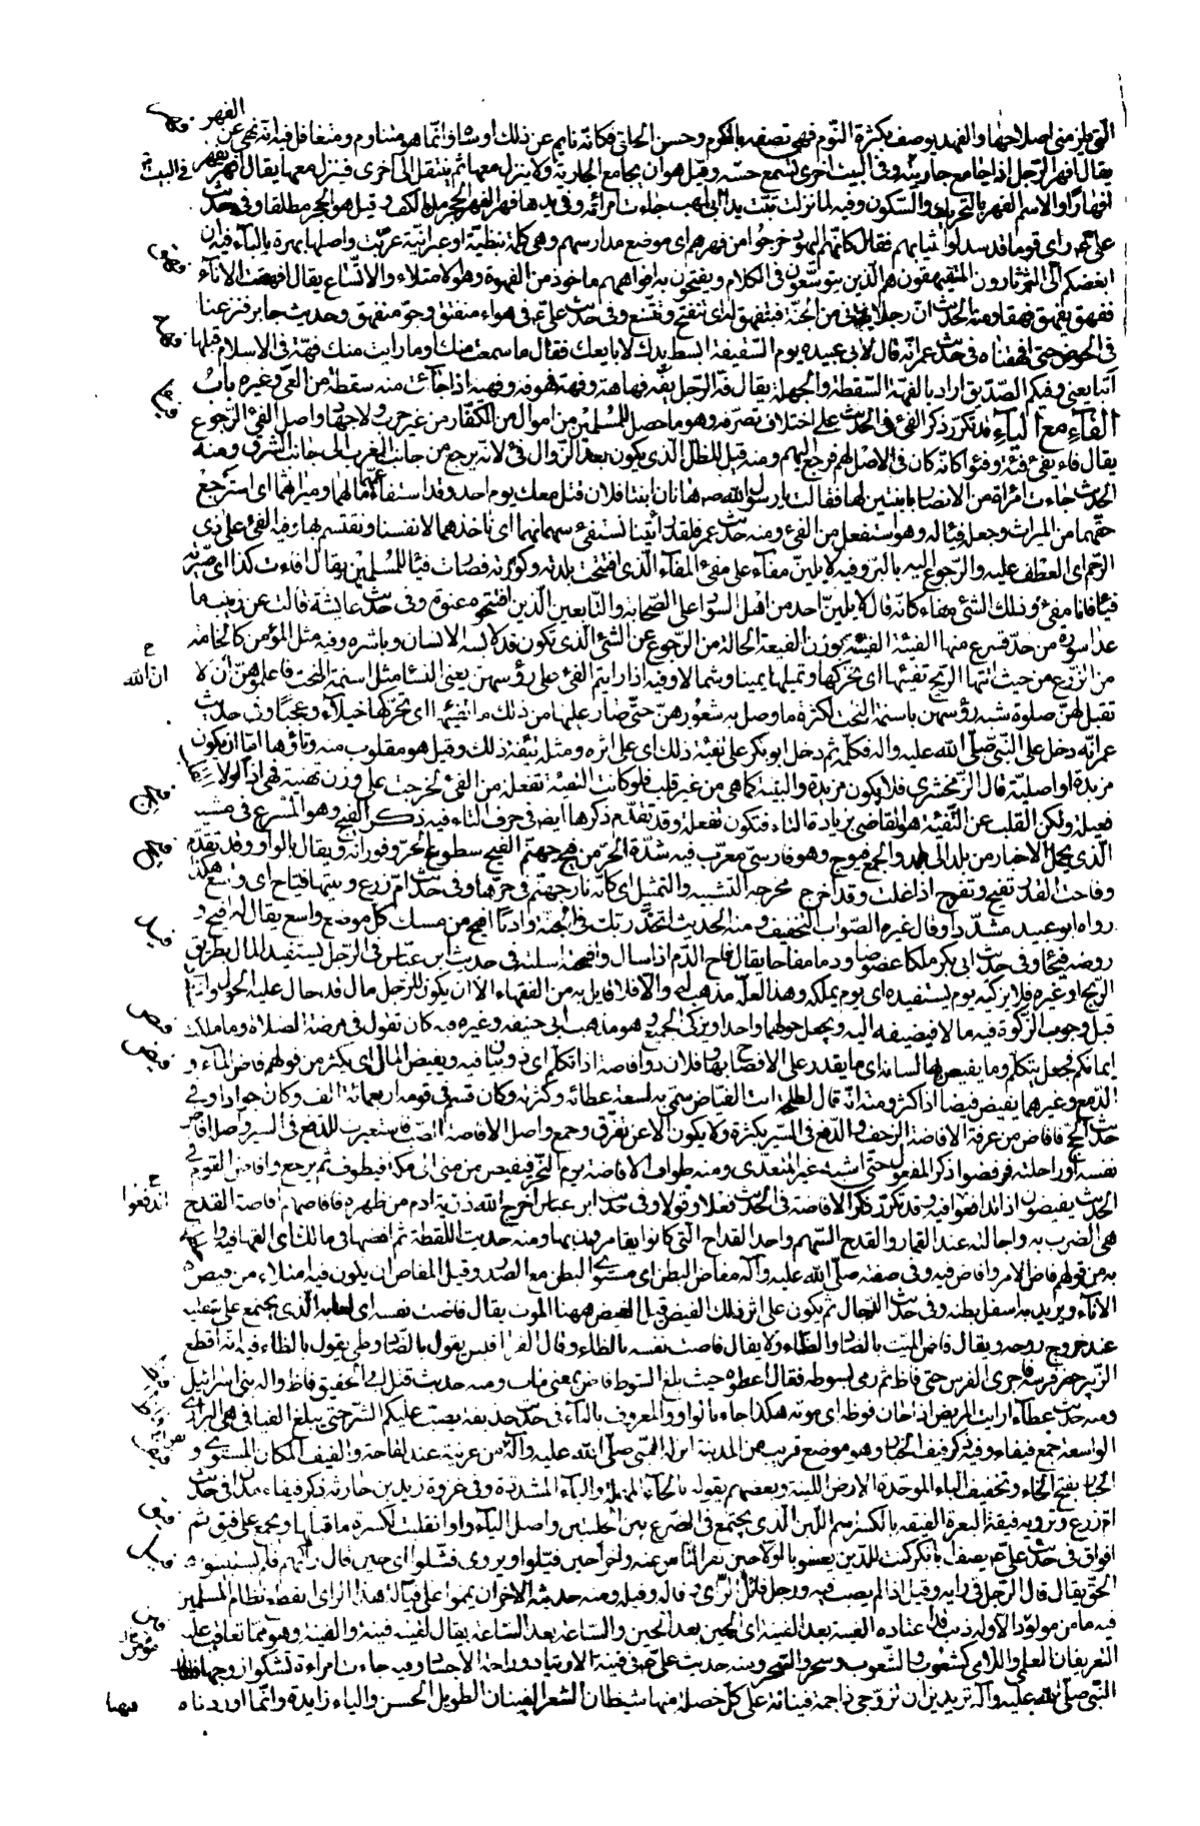 التي يلزمني اصلاحها والفهد يوصف بكثرة النوم فهي تصفه بالكرم وحسن الخلق فكانه نايم عن ذلك او ساه وانما هو متناوم ومتغافل فيه انه نهى عن الفهر
يقال افهر الرجل اذا جامع جاريته وفي البيت اخرى تسمع حسه وقيل هو ان يجامع الجارية ولا ينزل معها ثم ينتقل الى اخرى فينزل معها يقال افهر يفهر
افهارا والاسم الفهر بالتحريك والسكون وفيه لما نزلت تبت يدا ابي لهب جاءت امراته وفي يدها فهر الفهر الحجر ملء الكف وقيل هو الحجر مطلقا وفي حديث
علي راى قوما قد سدلوا ثيابهم فقال كانهم اليهود خرجوا من فهرهم اي موضع مدارسهم وهي كلمة نبطية او عبرانية عربت واصلها بهرة بالباء فيه ان
ابغضكم الي الثرثارون المتفيهقون هم الذين يتوسعون في الكلام ويفتحون به افواههم ماخوذ من الفهق وهو الامتلاء والاتساع يقال افهقت الاناء
ففهق يفهق فهقا ومنه الحديث ان رجلا يدنى من الجنة فتنفهق له اي تنفتح وتتسع وفي حديث علي في هواء منفتق وجو منفهق وحديث جابر فنزعنا
في الحوض حتى افهقناه في حديث عمر انه قال لابي عبيدة يوم السقيفة ابسط يدك لابايعك فقال ما سمعت منك او ما رايت منك فهة في الاسلام قبلها
اتبايعني وفيكم الصديق اراد بالفهة السقطة والجهلة يقال فه الرجل يفه فهاهة وفهة فهو فه وفهيه اذا جاءت منه سقطة من العي وغيره باب
الفاء مع الياء قد تكرر ذكر الفئ في الحديث على اختلاف تصرفه وهو ما حصل للمسلمين من اموال الكفار من غير حرب ولا جهاد واصل الفئ الرجوع
يقال فاء يفئ فئة وفيوا كانه كان في الاصل لهم فرجع اليهم ومنه قيل للظل الذي يكون بعد الزوال فئ لانه يرجع من جانب الغرب الى جانب الشرق ومنه
الحديث جاءت امراة من الانصار بابنتين لها فقالت يا رسول الله هاتان ابنتا فلان قتل معك يوم احد وقد استفاء عمهما مالهما وميراثهما اي استرجع
حقهما من الميراث وجعله فيئا له وهو استفعل من الفئ ومنه حديث عمر فلقد رايتنا نستفئ سهمانهما اي ناخذها لانفسنا ونقتسم بها وفيه الفئ على ذي
الرحم اي العطف عليه والرجوع اليه بالبر وفيه لا يلين مفاء على مفئ المفاء الذي افتتحت بلدته وكورته فصارت فيئا للمسلمين يقال افاءت كذا اي صيرته
فيئا فانا مفئ وذلك الشئ مفاء كانه قال لا يلين احد من اهل السواد على الصحابة والتابعين الذين افتتحوه عنوة وفي حديث عايشة قالت عن زينب ما
عدا سورة من حد تسرع منها الفيئة الفيئة بوزن الفيعة الحالة من الرجوع عن الشئ الذي يكون قد لابسه الانسان وباشره وفيه مثل المؤمن كالخامة
من الزرع من حيث اتتها الريح تفيئها اي تحركها وتميلها يمينا وشمالا وفيه اذا رايتم الفئ على رؤسهن يعني النساء مثل اسنمة البخت فاعلموهن ان لا
ان الله
تقبل لهن صلوة شبه رؤسهن باسنمة البخت لكثرة ما وصلن به شعورهن حتى صار عليها من ذلك ما يفيئها اي يحركها خيلاء وعجبا وفي حديث
عمر انه دخل على النبي صلى الله عليه واله فكلمه ثم دخل ابو بكر على تفيئة ذلك اي على اثره ومثله تئفة ذلك وقيل هو مقلوب منه وتاؤها اما ان يكون
مزيدة او اصلية قال الزمخشري فلا يكون مزيدة والبنية كما هي من غير قلب فلو كانت التفيئة تفعلة من الفئ لخرجت على وزن تهنئة فهي اذا لولا القلب
فعيلة ولكن القلب عن التئيفة هو القاضي بزيادة التاء فتكون تفعلة وقد تقدم ذكرها ايضا في حرف التاء فيه ذكر الفيج وهو المسرع في مشيه
الذي يحمل الاخبار من بلد الى بلد والجمع فيوج وهو فارسي معرب فيه شدة الحر من فيح جهنم الفيح سطوع الحر وفورانه ويقال بالواو وقد تقدم
وفاحت القدر تفيح وتفوح اذا غلت وقد اخرج مخرجه التشبيه والتمثيل اي كانه نار جهنم في حرها وفي حديث ام زرع وبيتها فياح اي واسع هكذا
رواه ابو عبيد مشددا وقال غيره الصواب التخفيف ومنه الحديث اتخذ ربك في الجنة واديا افيح من مسك كل موضع واسع يقال له افيح و
روضة فيحاء وفي حديث ابي بكر ملكا عضوضا ودما مفاحا يقال فاح الدم اذا سال وافحته اسلته في حديث ابن عباس في الرجل يستفيد المال بطريق
الربح او غيره فلا يزكيه يوم يستفيده اي يوم يملكه وهذا لعله مذهب له والا فلا قايل به من الفقهاء الا ان يكون للرجل مال قد حال عليه الحول
قبل وجوب الزكوة فيه مالا فيضيفه اليه ويجعل حولهما واحدا ويزكي الجميع وهو مذهب ابي حنيفة وغيره وبه كان تقول في مرضه الصلاة وما ملكت
ايمانكم فجعل يتكلم وما يفيص بها لسانه اي ما يقدر على الافصاح بها وفلان ذو افاصة اذا تكلم اي ذو بيان فيه ويفيض المال اي يكثر من قولهم فاض الماء و
الدمع وغيرهما يفيض فيضا اذا كثر ومنه انه قال لطلحة انت الفياض سمي به لسعة عطائه وكثرته وكان قسم في قومه اربعمائة الف وكان جوادا وفي
حديث الحج فافاض من عرفة الافاضة الزحف والدفع في السير بكثرة ولا يكون الا عن تفرق وجمع واصل الافاضة الصب فاستعيرت للدفع في السير واصله افاض
نفسه او راحلته فرفضوا ذكر المفعول حتى اشبه غير المتعدي ومنه طواف الافاضة يوم النحر فيفيض من منى الى مكة فيطوف ثم يرجع وافاض القوم في
الحديث يفيضون اذا اندفعوا فيه وقد تكرر ذكر الافاضة في الحديث فعلا وقولا وفي حديث ابن عباس اخرج الله ذرية ادم من ظهره فافاضهم افاضة القدح
اندفعوا
هي الضرب به واجالته عند القمار والقدح السهم واحد القداح التي كانوا يقامرون بها ومنه حديث اللقطة ثم افضها في مالك اي القها فيه واخلطها
به من قولهم فاض الامر وافاض فيه وفي صفته صلى الله عليه وآله مفاض البطن اي مستوي البطن مع الصدر وقيل المفاض ان يكون فيه امتلاء من فيض
الاناء ويريد به اسفل بطنه وفي حديث الدجال ثم يكون على اثر ذلك الفيض قيل الفيض ههنا الموت يقال فاضت نفسه اي لعابه الذي يجتمع على شفتيه
عند خروج روحه ويقال فاض الميت بالضاد والظاء ولا يقال فاضت نفسه بالظاء وقال الفراء قيس يقول بالضاد وطي يقول بالظاء فيه انه اقطع
الزبير حضر فرسه فاجرى الفرس حتى فاظ ثم رمى بسوطه فقال اعطوه حيث بلغ السوط فاظ بمعنى مات ومنه حديث قتل ابن ابي الحقيق فاظ واله بني اسرائيل
ومنه حديث عطاء ارايت المريض اذا حان فوظه اي موته هكذا جاء بالواو والمعروف بالياء في حديث حذيفة يصب عليكم الشر حتى يبلغ الفيافي هي البراري
الواسعة جمع فيفاء وفيه ذكر فيف الخبار وهو موضع قريب من المدينة انزله النبي صلى الله عليه وآله من عرينة عند لقاحه والفيف المكان المستوي و
الخبار بفتح الخاء وتخفيف الباء الموحدة الارض اللينة وبعضهم يقوله بالحاء المهملة والباء المشددة وفي غزوة زيد بن حارثة ذكر فيفاء مدان في حديث
ام زرع وترويه فيقة اليعرة الفيقة بالكسر اسم اللبن الذي يجتمع في الضرع بين الحلبتين واصل الياء واو انقلبت لكسرة ما قبلها وجمع على فيق ثم
افواق في حديث علي يصف ابا بكر كنت للدين يعسوبا اولا حين نفر الناس عنه واخرا حين فيلوا ويروى فشلوا اي حين فال رايهم فلم يستبينوا
الحق يقال فال الرجل في رايه وفيل اذا لم يصب فيه ورجل فائل الراي وفاله وفيله ومنه حديثه الاخر ان تموا على فيالة هذا الراي انقطع نظام المسلمين
فيه ما من مولود الا وله ذنب قد اعتاده الفينة بعد الفينة اي الحين بعد الحين والساعة بعد الساعة يقال لقيته فينة والفينة وهو مما تعاقب عليه
التعريفان العلمي واللامي كشعوب والشعوب وسحر والسحر ومنه حديث علي في فينة الارتياد وراحة الاجساد وفيه جاءت امراة تشكو زوجها فقال
النبي صلى الله عليه وآله تريدين ان تزوجي ذا جمة فينانة على كل خصلة منها شيطان الشعر الفينان الطويل الحسن والياء زايدة وانما اوردناه